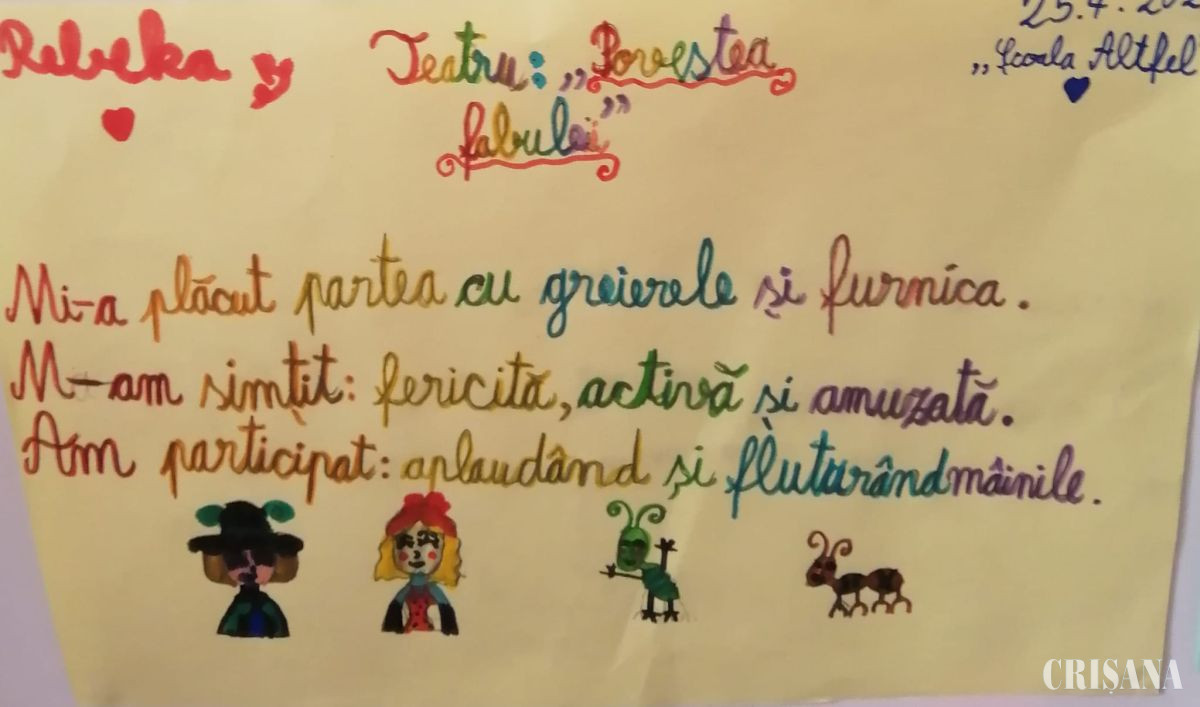 Rebeka
Teatru: „Povestea
fabulei”
25.4.202
„Școala Altfel
Mi-a plăcut partea cu greierele și furnica.
M-am simțit: fericită, activă și amuzată.
Am participat: aplaudând și fluturând mâinile.
CRIȘANA